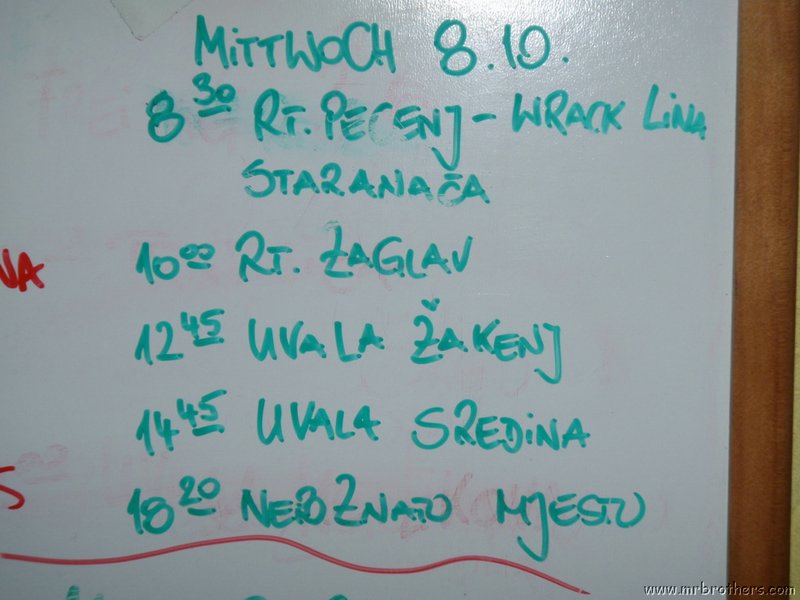 MITTWOCH 8.10.
8 30 RT. PECENJ - WRACK LINA
STARANAČA
10 00 RT. ŽAGLAV
NA
12 45 UVALA ŽAKENJ
14 45 UVALA SREDINA
18 20 NEPOZNATO MJESTO
www.mrbrothers.com